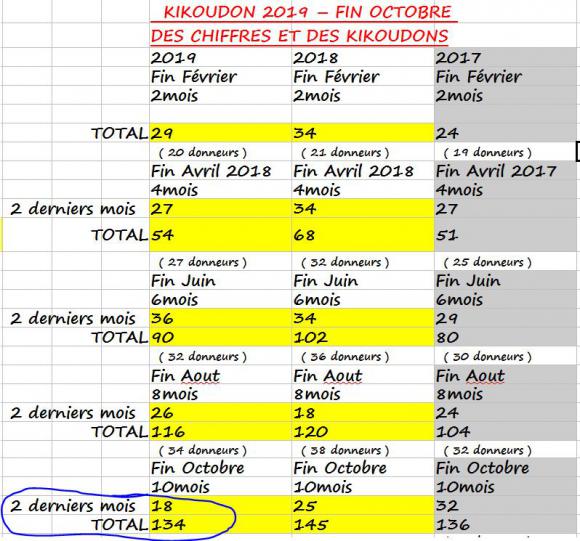 KIKOUDON 2019 – FIN OCTOBRE
DES CHIFFRES ET DES KIKOUDONS
2019 2018 2017
Fin Février Fin Février Fin Février
2mois 2mois 2mois
TOTAL 29 34 24
( 20 donneurs ) ( 21 donneurs ) ( 19 donneurs )
Fin Avril 2018 Fin Avril 2018 Fin Avril 2017
4mois 4mois 4mois
2 derniers mois 27 34 27
TOTAL 54 68 51
( 27 donneurs ) ( 32 donneurs ) ( 25 donneurs )
Fin Juin Fin Juin Fin Juin
6mois 6mois 6mois
2 derniers mois 36 34 29
TOTAL 90 102 80
( 32 donneurs ) ( 36 donneurs ) ( 30 donneurs )
Fin Aout Fin Aout Fin Aout
8mois 8mois 8mois
2 derniers mois 26 18 24
TOTAL 116 120 104
( 34 donneurs ) ( 38 donneurs ) ( 32 donneurs )
Fin Octobre Fin Octobre Fin Octobre
10mois 10mois 10mois
2 derniers mois 18 25 32
TOTAL 134 145 136